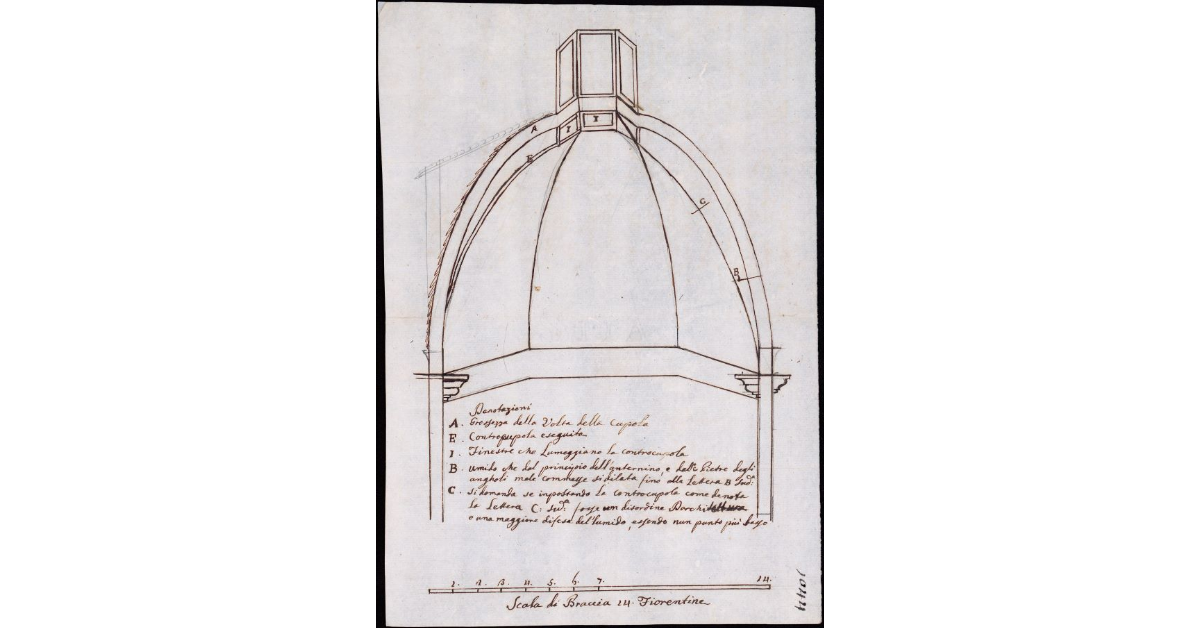 A
I
I
E
C
B
Denotazioni
A. Grossezza della Volta della Cupola
E. Contrecupola eseguita
I. Finestre che Lumeggiano la controcupola
B. umido che dal principio dell' e dalle Pietre degli
angholi male commesse si dilata fino alla Lettera B Sud.ᵃ
C. si domanda se inpostando la controcupola come denota
la Lettera C. Sud.ᵃ fosse un disordine
o una maggiore difesa dell'umido, essendo nun punto più basso
1. 2. 3. 4. 5. 6. 7. 14.
Scala di Braccia 14. Fiorentine